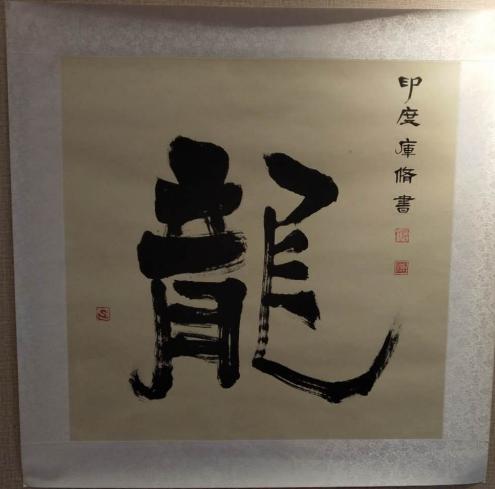 印度庫脩書
龍